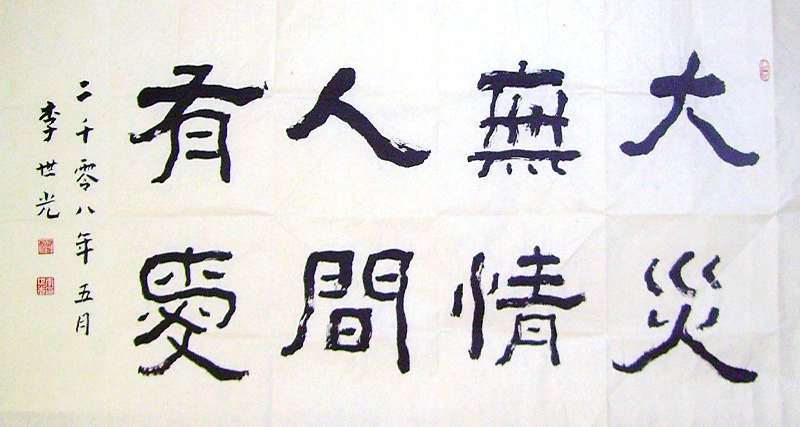 大災
無情
人間
有愛
二千零八年五月
李世光